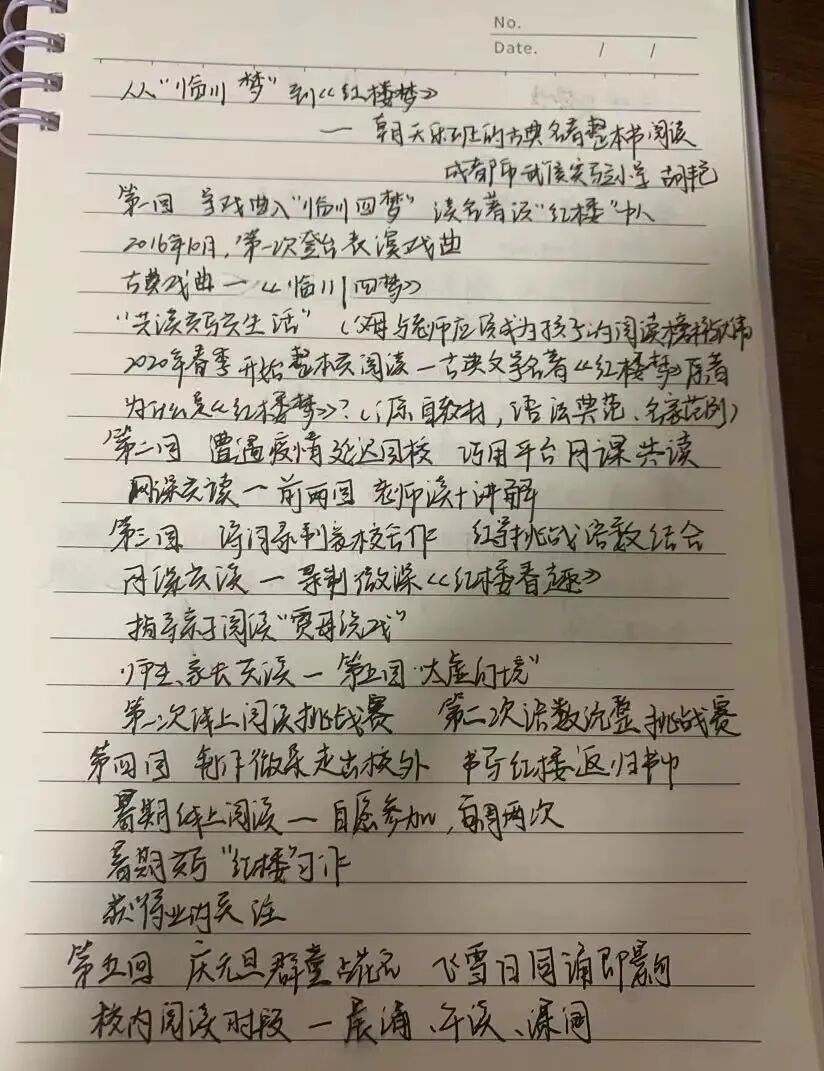 No.
Date. / /
从"临川梦"到《红楼梦》
— 朝天乐班的古典名著整本书阅读
成都市武侯实验小学 胡艳
第一回 学戏曲入"临川四梦" 读名著议"红楼"中人
2016年10月,第一次登台表演戏曲
古典戏曲—《临川四梦》
"共读共写共生活"(父母与老师应该成为孩子的阅读榜样
2020年春季开始整本共阅读—古典文学名著《红楼梦》原著
为什么是《红楼梦》?(源自教材,语法典范、名家范例)
第二回 遭遇疫情延迟回校 巧用平台网课共读
网课共读—前两回 老师读+讲解
第三回 录制家校合作 红学挑战语数结合
网课共读—录制微课《红楼春趣》
指导亲子阅读"贾母说戏"
师生、家长共读—第五回"太虚幻境"
第一次线上阅读挑战赛 第二次语数完整挑战赛
第四回 制作微录走出校外 书写红楼返归书中
暑期线上阅读—自愿参加,每周两次
暑期共写"红楼"习作
获得业内关注
第五回 庆元旦群童占花名 飞雪日同诵即景句
校内阅读时段—晨诵、午读、课间